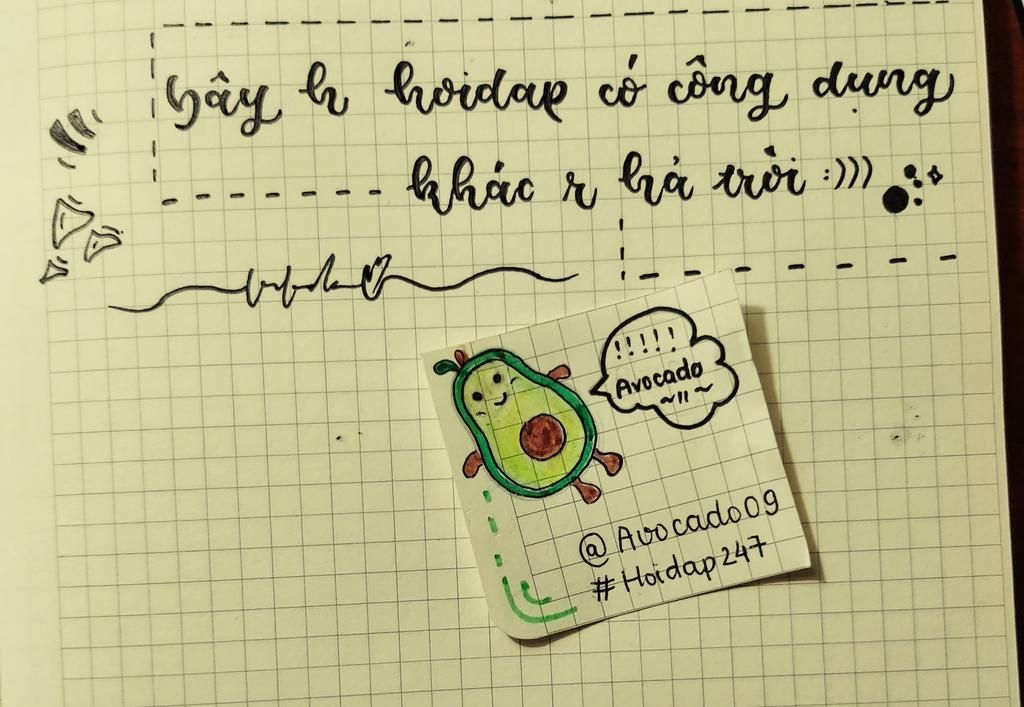 bây h hoidap có công dụng
khác r hả trời :)))
!!!!!
Avocado
~"~
@Avocado09
#Hoidap247